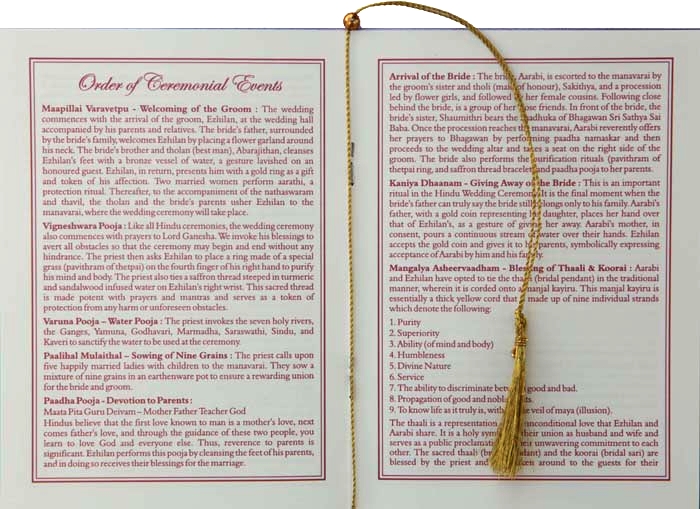 Order of Ceremonial Events
Maapillai Varavetpu - Welcoming of the Groom : The wedding
commences with the arrival of the groom, Ezhilan, at the wedding hall
accompanied by his parents and relatives. The bride's father, surrounded
by the bride's family, welcomes Ezhilan by placing a flower garland around
his neck. The bride's brother and tholan (best man), Abarajithan, cleanses
Ezhilan's feet with a bronze vessel of water, a gesture lavished on an
honoured guest. Ezhilan, in return, presents him with a gold ring as a gift
and token of his affection. Two married women perform aarathi, a
protection ritual. Thereafter, to the accompaniment of the nathaswaram
and thavil, the tholan and the bride's parents usher Ezhilan to the
manavarai, where the wedding ceremony will take place.
Vigneshwara Pooja : Like all Hindu ceremonies, the wedding ceremony
also commences with prayers to Lord Ganesha. We invoke his blessings to
avert all obstacles so that the ceremony may begin and end without any
hindrance. The priest then asks Ezhilan to place a ring made of a special
grass (pavithram of thetpai) on the fourth finger of his right hand to purify
his mind and body. The priest also ties a saffron thread steeped in turmeric
and sandalwood infused water on Ezhilan's right wrist. This sacred thread
is made potent with prayers and mantras and serves as a token of
protection from any harm or unforeseen obstacles.
Varuna Pooja – Water Pooja : The priest invokes the seven holy rivers,
the Ganges, Yamuna, Godhavari, Marmadha, Saraswathi, Sindu, and
Kaveri to sanctify the water to be used at the ceremony.
Paalibal Mulaithal – Sowing of Nine Grains : The priest calls upon
five happily married ladies with children to the manavarai. They sow a
mixture of nine grains in an earthenware pot to ensure a rewarding union
for the bride and groom.
Paadha Pooja - Devotion to Parents :
Maata Pita Guru Deivam – Mother Father Teacher God
Hindus believe that the first love known to man is a mother's love, next
comes father's love, and through the guidance of these two people, you
learn to love God and everyone else. Thus, reverence to parents is
significant. Ezhilan performs this pooja by cleansing the feet of his parents,
and in doing so receives their blessings for the marriage.
Arrival of the Bride : The bride, Aarabi, is escorted to the manavarai by
the groom's sister and tholi (maid of honour), Sakithya, and a procession
led by flower girls, and followed by her female cousins. Following close
behind the bride, is a group of her close friends. In front of the bride, the
bride's sister, Shaumithri bears the Paadhuka of Bhagawan Sri Sathya Sai
Baba. Once the procession reaches the manavarai, Aarabi reverently offers
her prayers to Bhagawan by performing paadha namaskar and then
proceeds to the wedding altar and takes a seat on the right side of the
groom. The bride also performs the purification rituals (pavithram of
thetpai ring, and saffron thread bracelet) and paadha pooja to her parents.
Kaniya Dhaanam - Giving Away of the Bride : This is an important
ritual in the Hindu Wedding Ceremony. It is the final moment when the
bride's father can truly say the bride still belongs only to his family. Aarabi's
father, with a gold coin representing his daughter, places her hand over
that of Ezhilan's, as a gesture of giving her away. Aarabi's mother, in
consent, pours a continuous stream of water over their hands. Ezhilan
accepts the gold coin and gives it to his parents, symbolically expressing
acceptance of Aarabi by him and his family.
Mangalya Asheervaadham - Blessing of Thaali & Koorai : Aarabi
and Ezhilan have opted to tie the thaali (bridal pendant) in the traditional
manner, wherein it is corded onto a manjal kayiru. This manjal kayiru is
essentially a thick yellow cord that is made up of nine individual strands
which denote the following:
1. Purity
2. Superiority
3. Ability (of mind and body)
4. Humbleness
5. Divine Nature
6. Service
7. The ability to discriminate between good and bad.
8. Propagation of good and noble
9. To know life as it truly is, without the veil of maya (illusion).
The thaali is a representation of the unconditional love that Ezhilan and
Aarabi share. It is a holy symbol of their union as husband and wife and
serves as a public proclamation of their unwavering commitment to each
other. The sacred thaali (bridal pendant) and the koorai (bridal sari) are
blessed by the priest and taken around to the guests for their